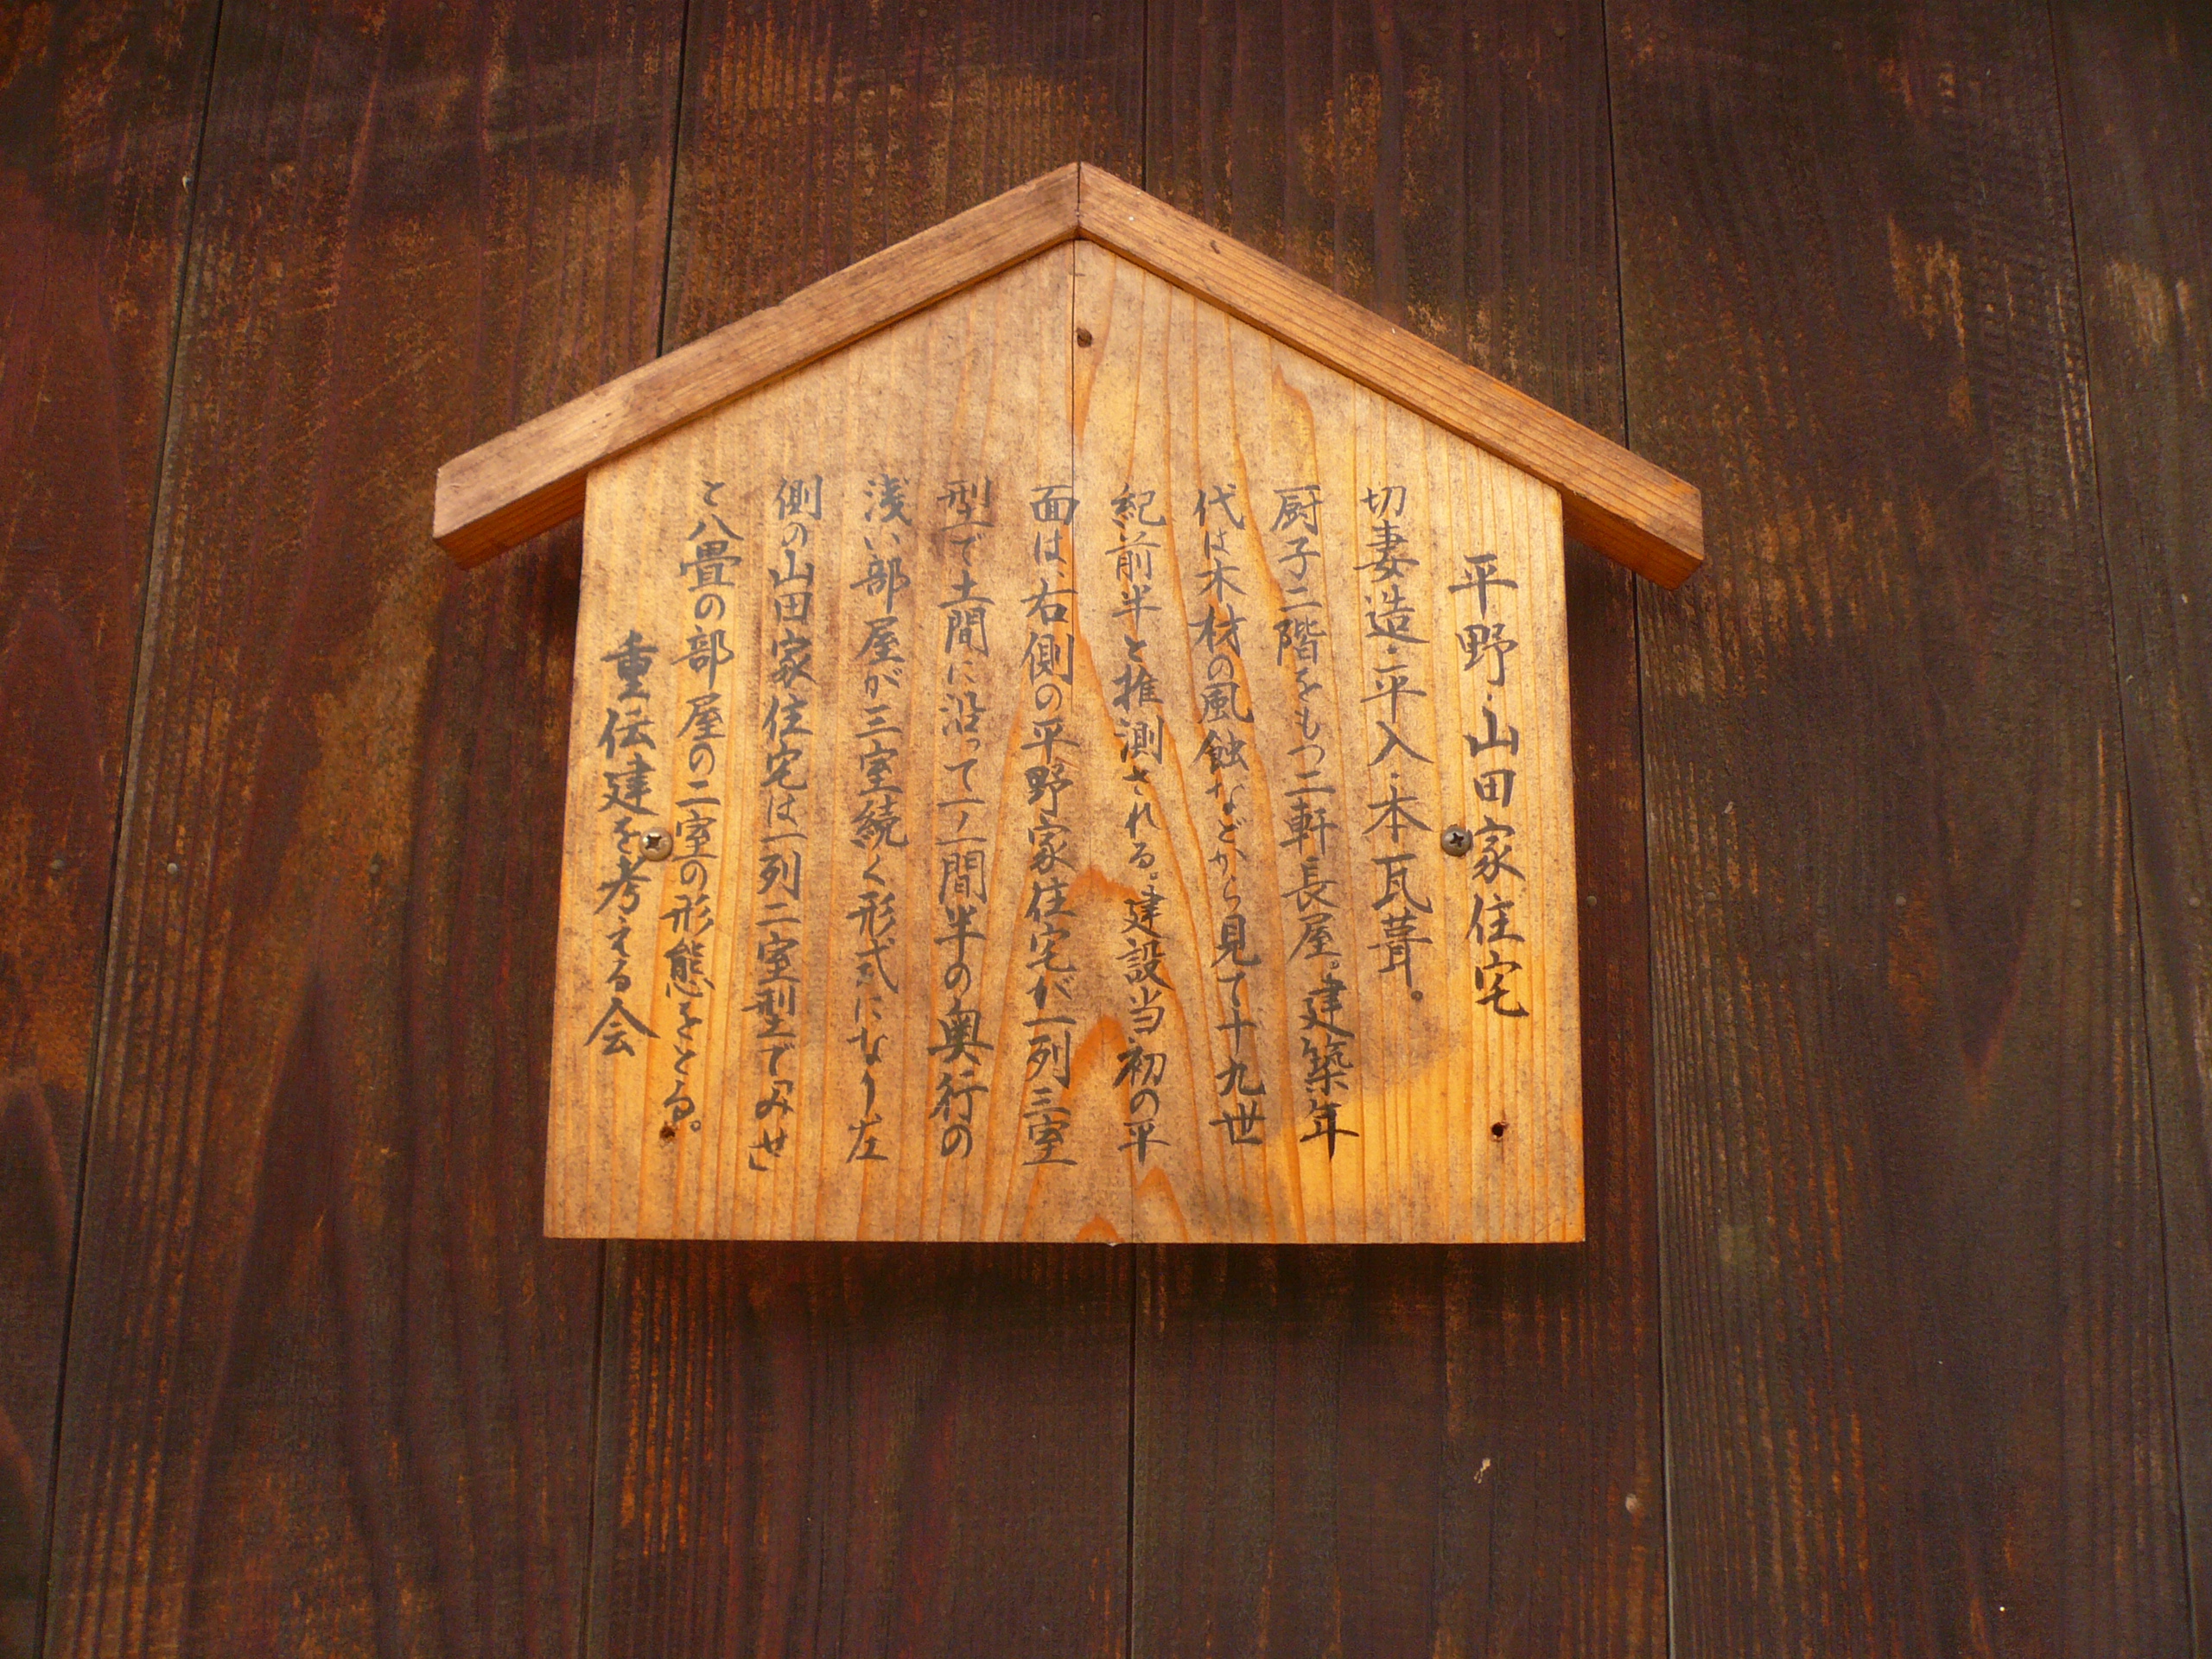 平野・山田家住宅
切妻造・平入・本瓦葺。
厨子二階をもつ二軒長屋。建築年
代は木材の風蝕などから見て十九世
紀前半と推測される。建設当初の平
面は、右側の平野家住宅が一列三室
型で土間に沿って一ノ二間半の奥行の
浅い部屋が三室続く形式になり左
側の山田家住宅は一列二室型で「みせ」
と八畳の部屋の二室の形態をとる。
重伝建を考える会